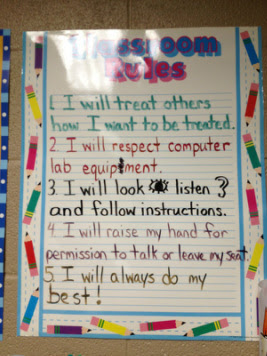 Classroom
Rules
1. I will treat others
how I want to be treated.
2. I will respect computer
lab equipment.
3. I will look listen
and follow instructions.
4. I will raise my hand for
permission to talk or leave my seat.
5. I will always do my
best!